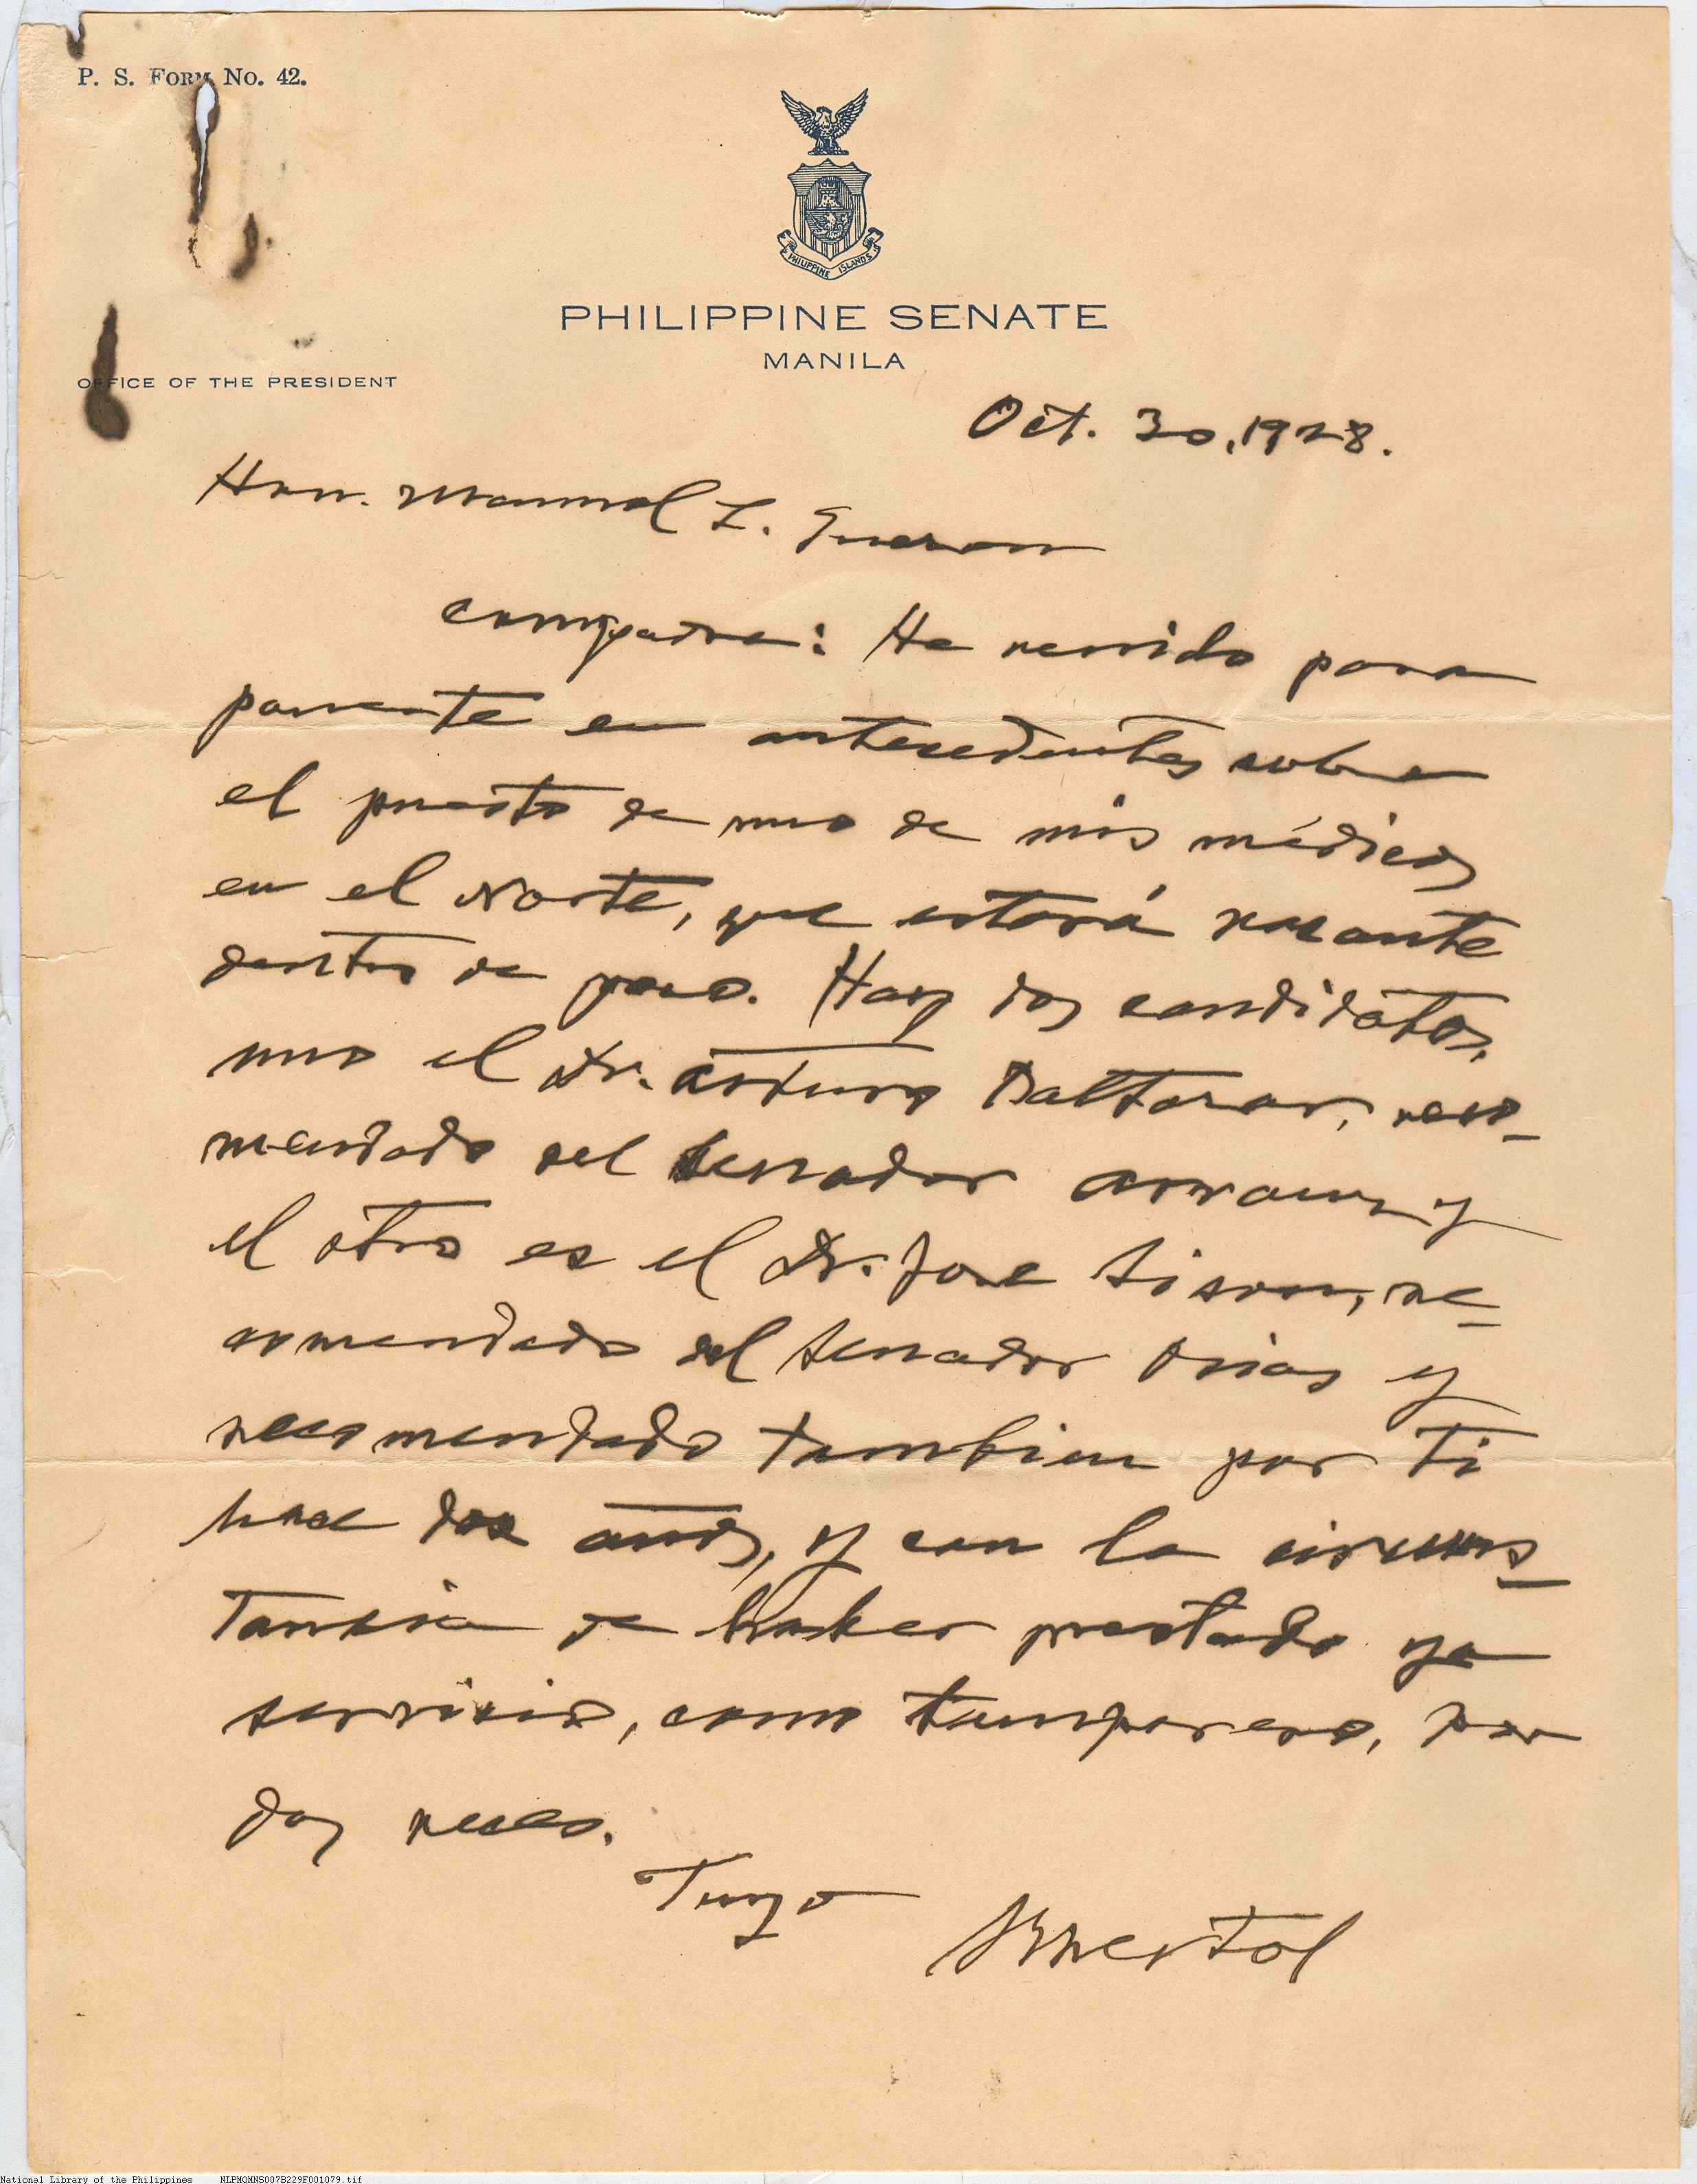 P. S. FORM No. 42.
PHILIPPINE ISLANDS
PHILIPPINE SENATE
MANILA
OFFICE OF THE PRESIDENT
Oct. 30, 1928.
Hon. Manuel L. Quezon
Compadre: He venido para
ponerte en antecedentes sobre
el puesto de uno de mis médicos
en el Norte, que estará vacante
dentro de poco. Hay dos candidatos,
uno el Dr. Arturo Baltazar, reco-
mendado del Senador Arranz y
el otro es el Dr. Jose Sison, re-
comendado del Senador Osias y
recomendado tambien por ti
hace dos años, y con la circuns-
tancia de haber prestado ya
servicio, como temporero, por
dos veces.
Tuyo
National Library of the Philippines NLPMQMNS007B229F001079.tif